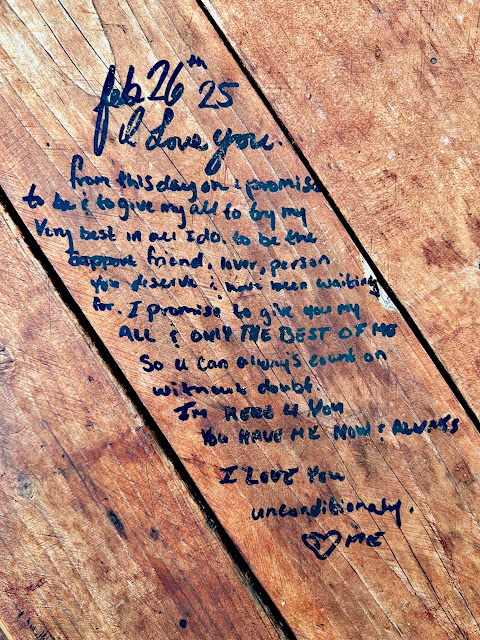 feb 26th 25
I Love you.
from this day on i promise
to be & to give my all to try my
Very best in all I do. to be the
support friend, lover, person
you deserve & have been waiting
for. I promise to give you my
ALL & ONLY THE BEST OF ME
So u can always count on
without doubt.
I'M HERE 4 YOU
YOU HAVE ME NOW & ALWAYS
I LOVE YOU
unconditionaly.
♡ ME